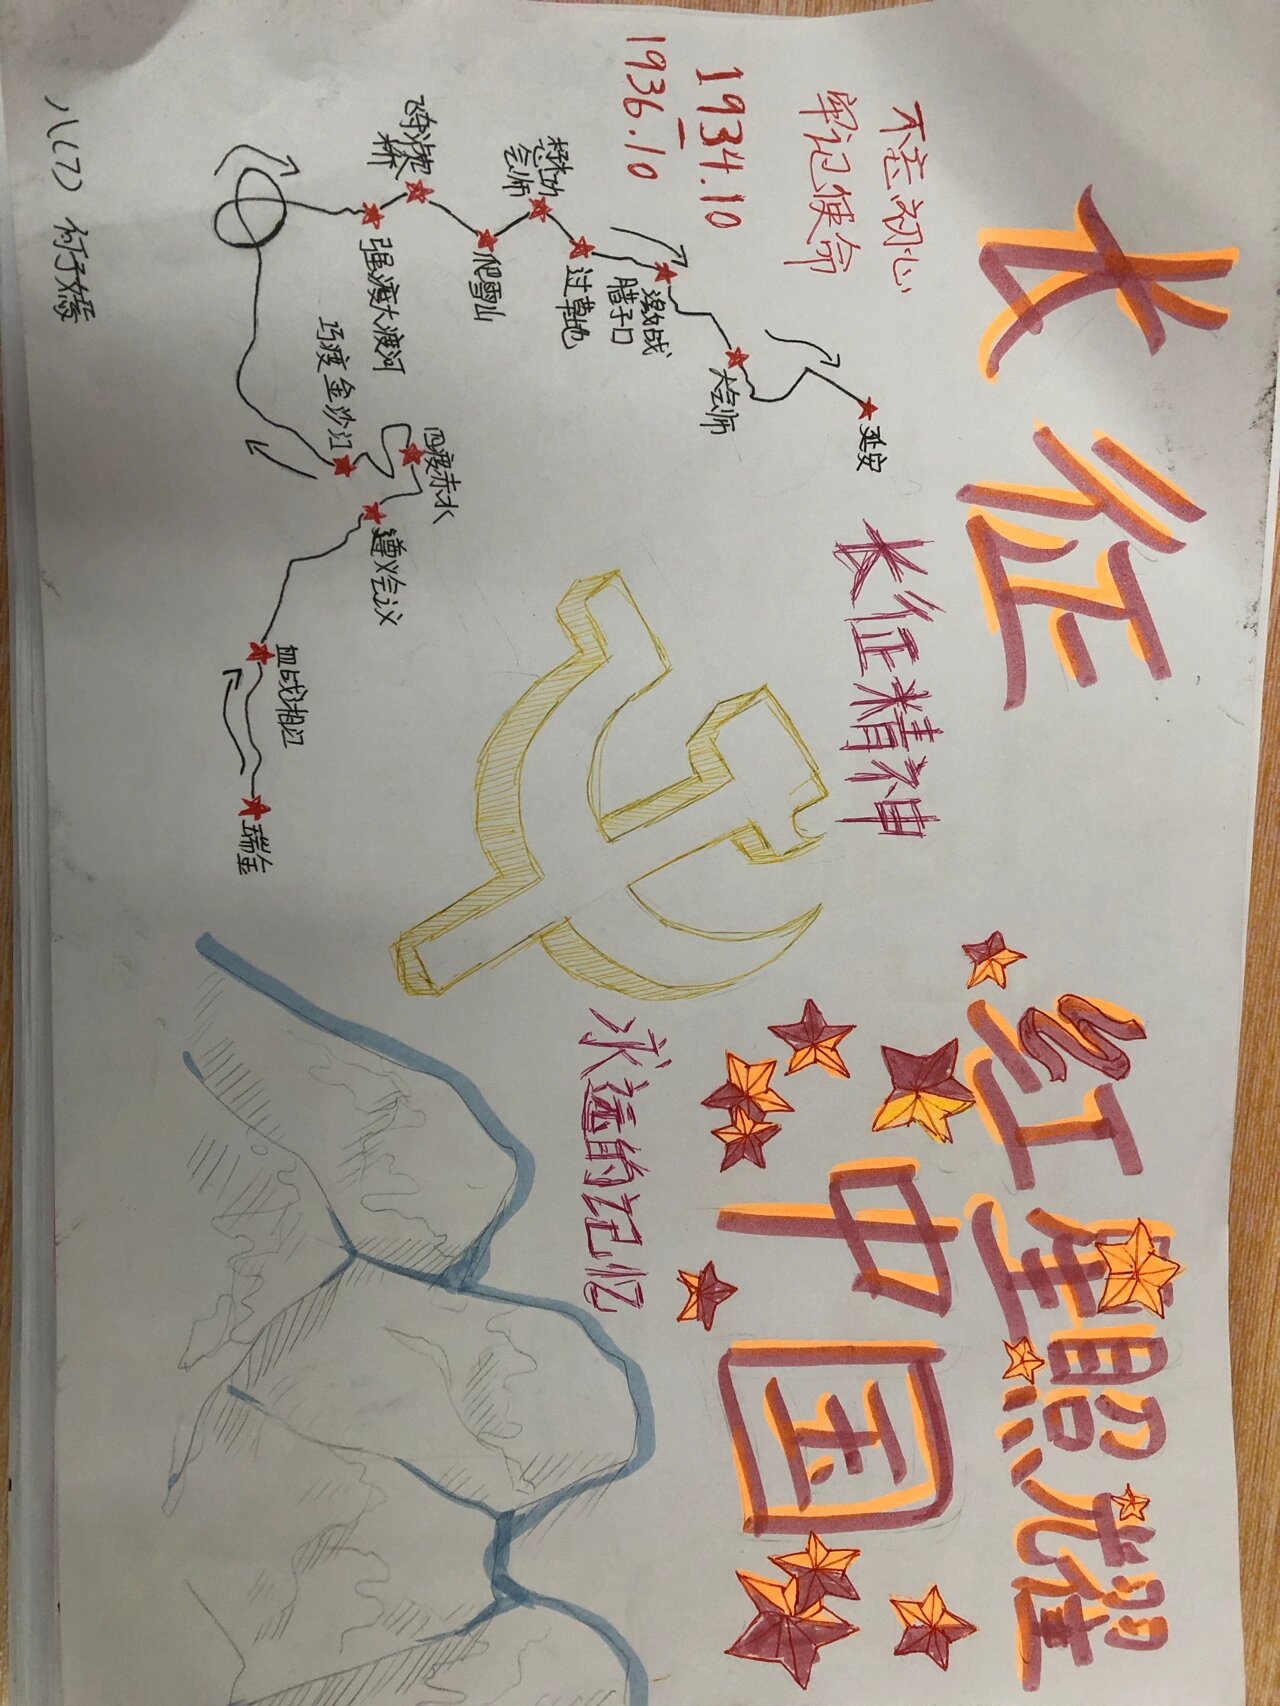 长征
红星照耀
中国
不忘初心
牢记使命
1934.10
—
1936.10
长征精神
永远的记忆
延安
大会师
激战
腊子口
过草地
懋功
会师
爬雪山
飞夺泸定
桥
强渡大渡河
巧渡金沙江
四渡赤水
遵义会议
血战湘江
瑞金
八(7)